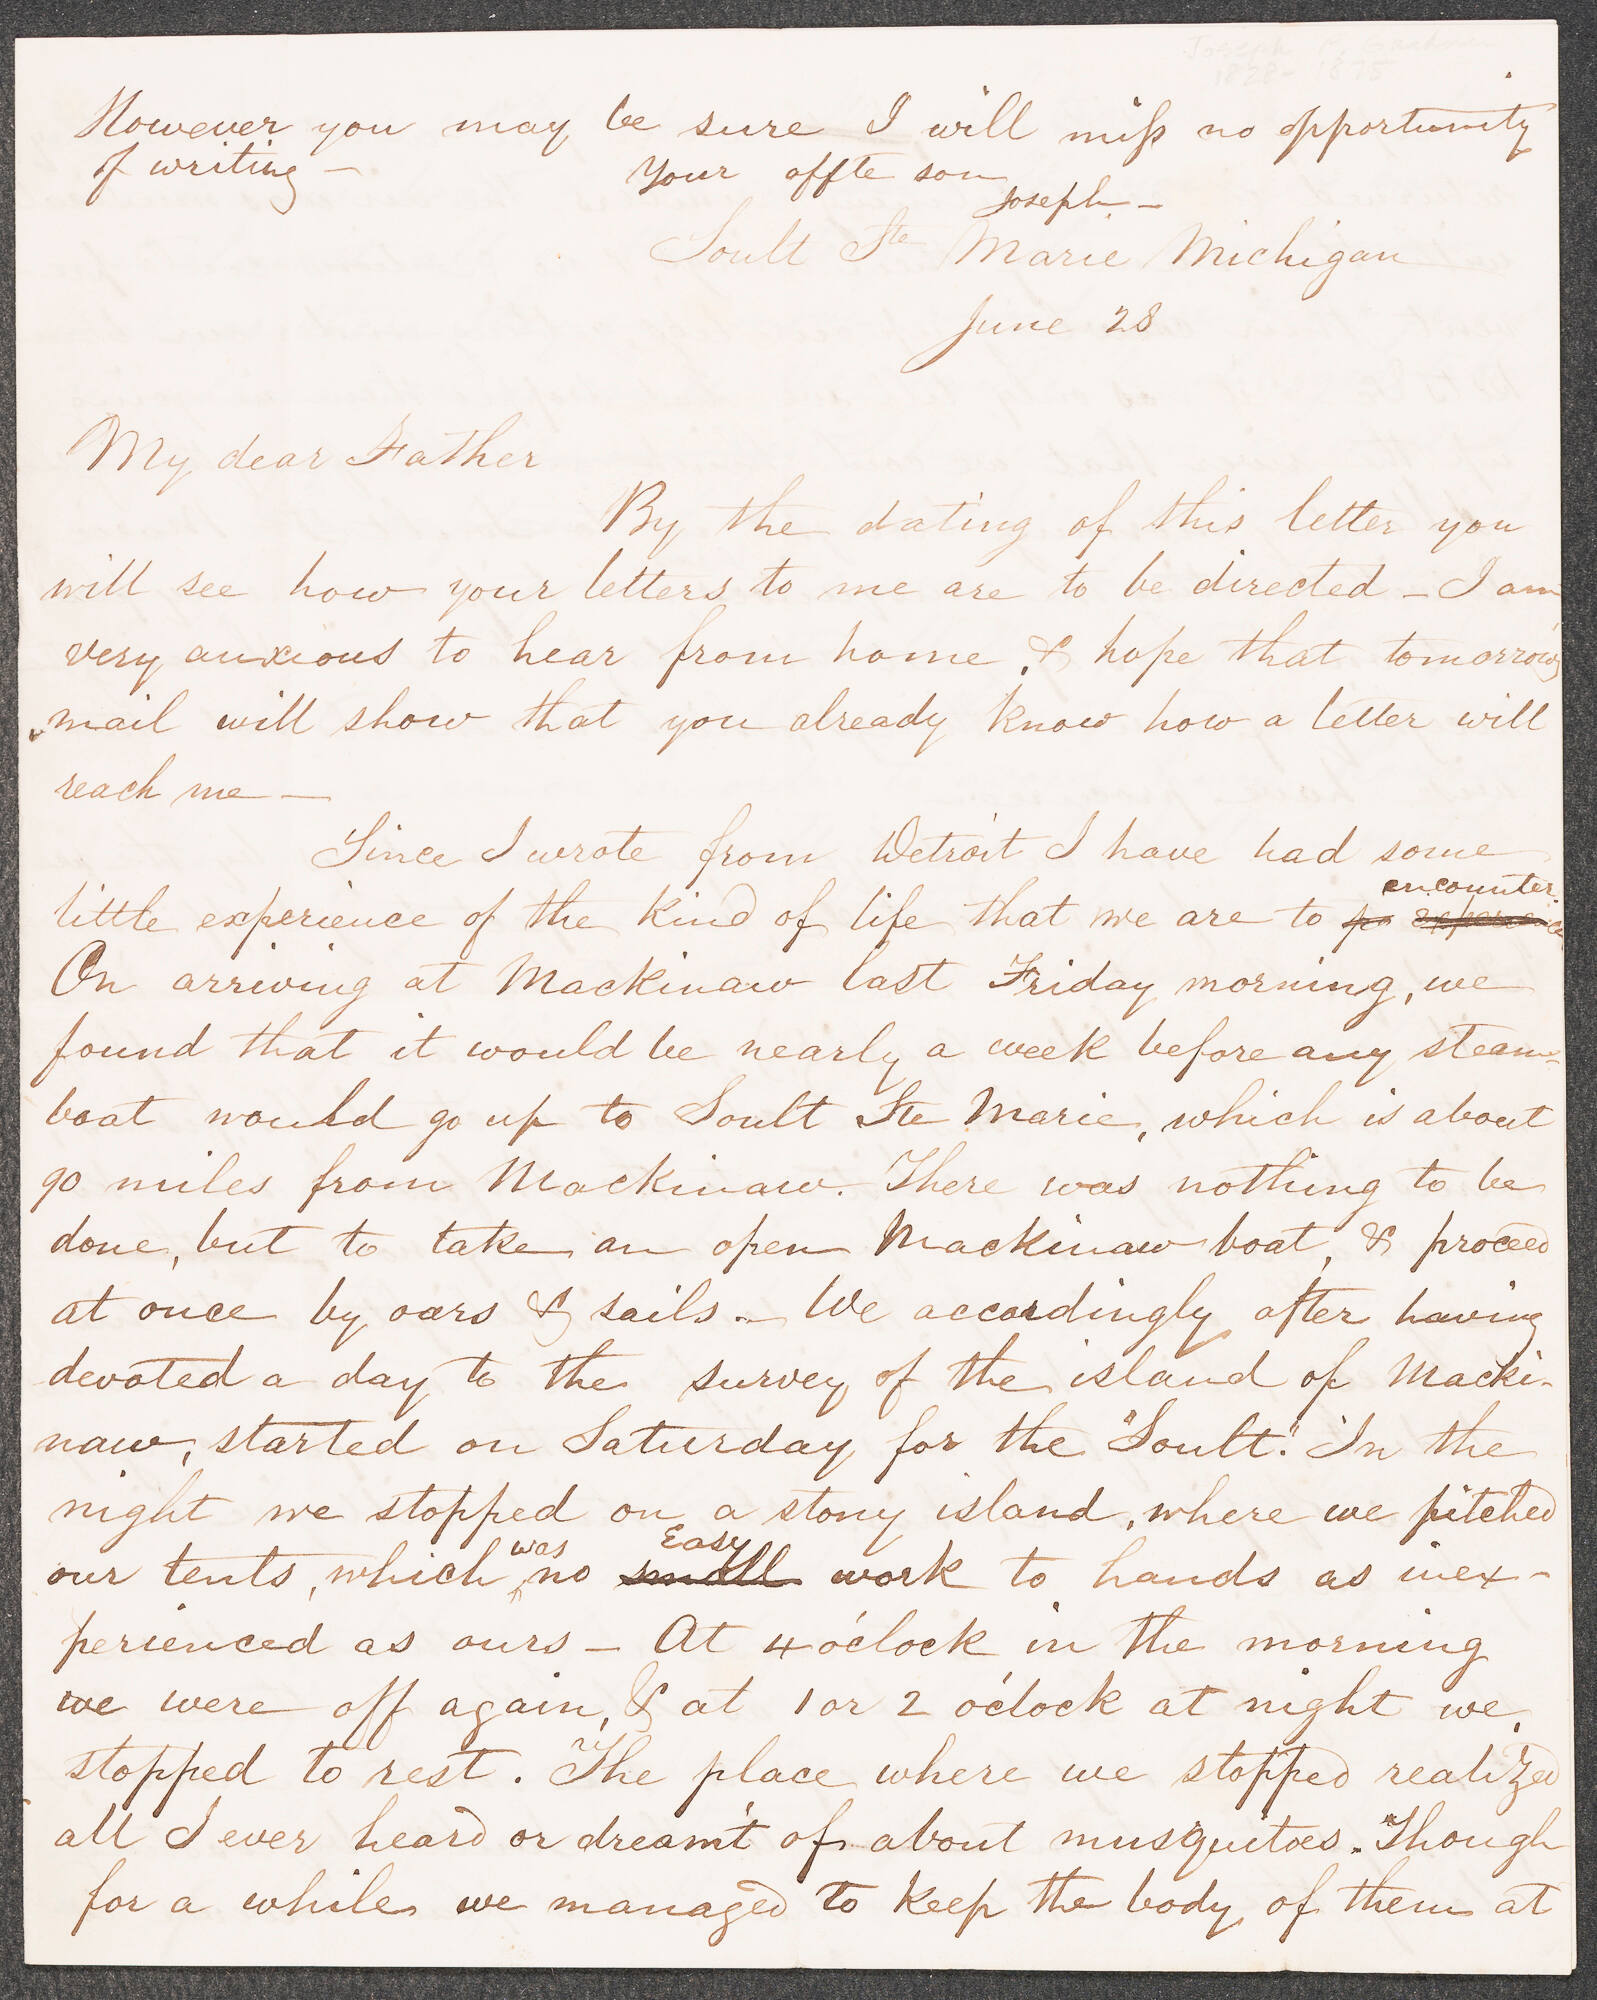 Joseph P. Gardner
1828-1875
However you may be sure I will miss no opportunity
of writing —
Your affte son
Joseph —
Soult Ste Marie Michigan
June 28
My dear Father
By the dating of this letter you
will see how your letters to me are to be directed — I am
very anxious to hear from home, & hope that tomorrows
mail will show that you already know how a letter will
reach me —
Since I wrote from Detroit I have had some
encounter.
little experience of the kind of life that we are to
On arriving at Mackinaw last Friday morning, we
found that it would be nearly a week before any steam-
boat would go up to Soult Ste Marie, which is about
90 miles from Mackinaw. There was nothing to be
done, but to take an open Mackinaw boat, & proceed
at once by oars & sails. — We accordingly after having
devoted a day to the survey of the island of Macki-
naw, started on Saturday for the "Soult." In the
night we stopped on a stony island, where we pitched
was Easy
our tents, which no small work to hands as inex-
perienced as ours — At 4 o'clock in the morning
we were off again, & at 1 or 2 o'clock at night we
stopped to rest. The place where we stopped realized
all I ever heard or dream't of about musquitoes. Though
for a while we managed to keep the body of them at